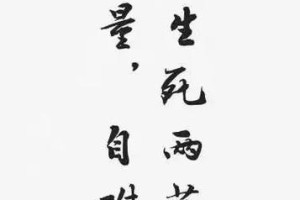 生死两
量，自